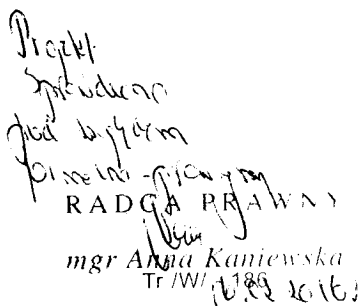 Projekt
Sprawdzono
pod względem
formalno-prawnym
RADCA PRAWNY
mgr Anna Kaniewska
Tr /W/ 186